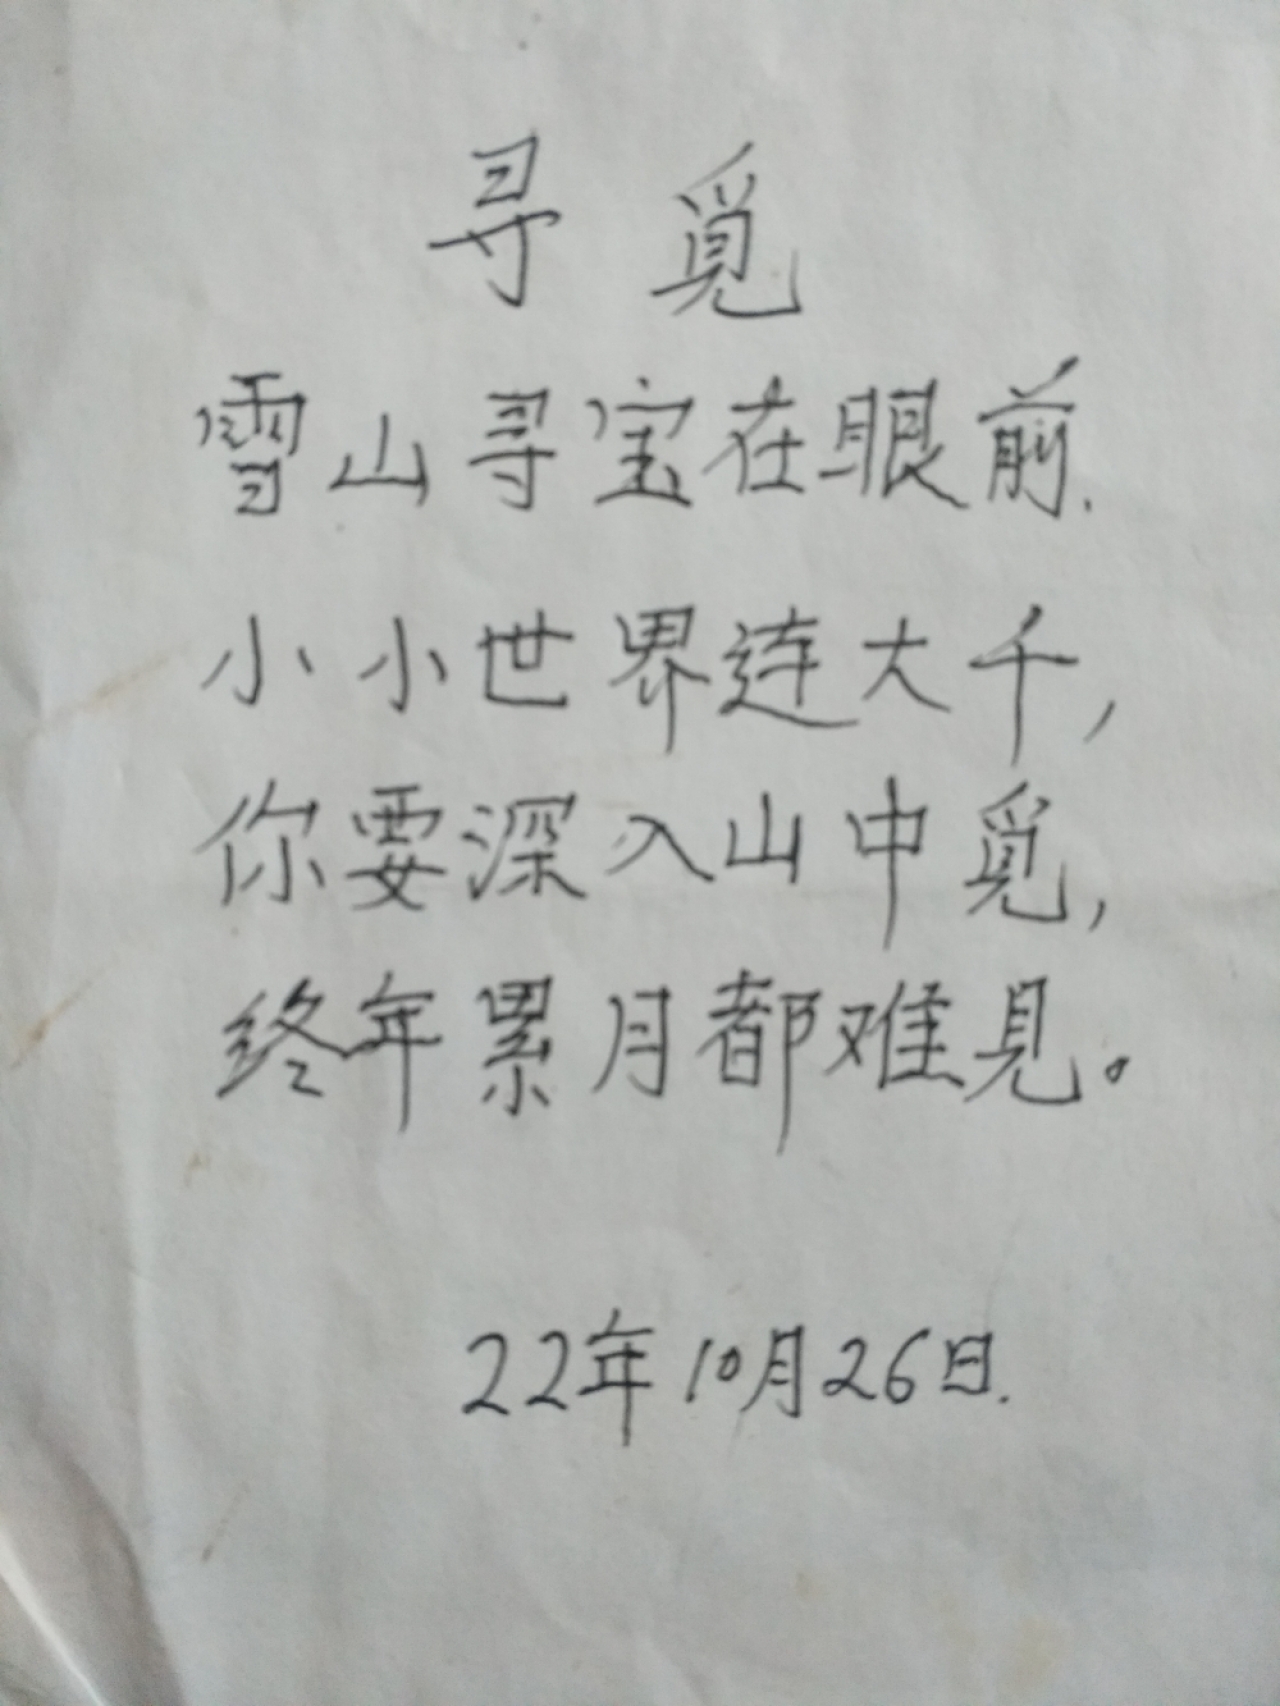 寻觅
雪山寻宝在眼前.
小小世界连大千,
你要深入山中觅,
终年累月都难见。
22年10月26日.